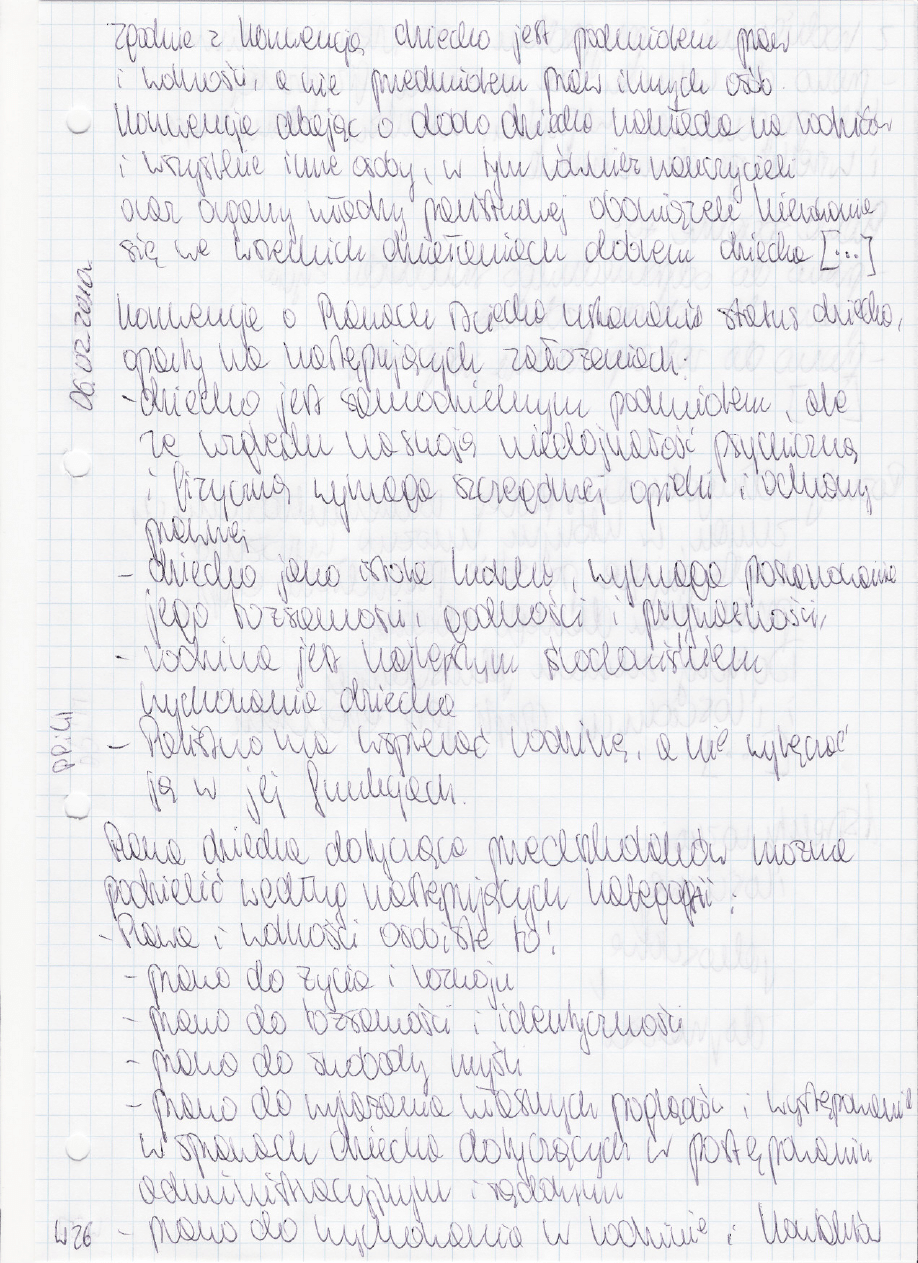 Zgodnie z Konwencją dziecko jest podmiotem praw
i wolności, a nie przedmiotem praw innych osób.
Konwencja dbając o dobro dziecka nakłada na rodziców
i wszystkie inne osoby, w tym również nauczycieli
oraz organy władzy państwowej obowiązek kierowania
się we wszelkich działaniach dobrem dziecka [...]
06.02.2010r.
Konwencja o Prawach Dziecka ustanawia status dziecka,
oparty na następujących założeniach:
- dziecko jest samodzielnym podmiotem, ale
ze względu na swoją niedojrzałość psychiczną
i fizyczną wymaga szczególnej opieki i ochrony
prawnej
- dziecko jako istota ludzka, wymaga poszanowania
jego tożsamości, godności i prywatności,
- rodzina jest najlepszym środowiskiem
wychowania dziecka
- Państwo ma wspierać rodzinę, a nie wyręczać
ją w jej funkcjach.
Prawa dziecka dotyczące przedszkolaków można
podzielić według następujących kategorii:
- Prawa i wolności osobiste to:
- prawo do życia i rozwoju
- prawo do tożsamości i identyczności
- prawo do swobody myśli
- prawo do wyrażania własnych poglądów i występowania
w sprawach dziecka dotyczących w postępowaniu
administracyjnym i sądowym
W26
- prawo do wychowania w rodzinie i kontaktów